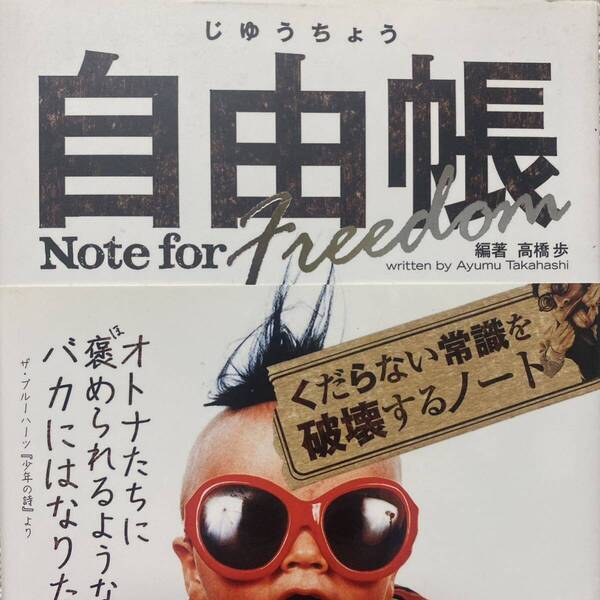 じゆうちょう
自由帳
Note for Freedom
編著 高橋歩
written by Ayumu Takahashi
くだらない常識を
破壊するノート
オトナたちに
褒められるような
ほ
バカにはなりた
ザ・ブルーハーツ『少年の詩』より